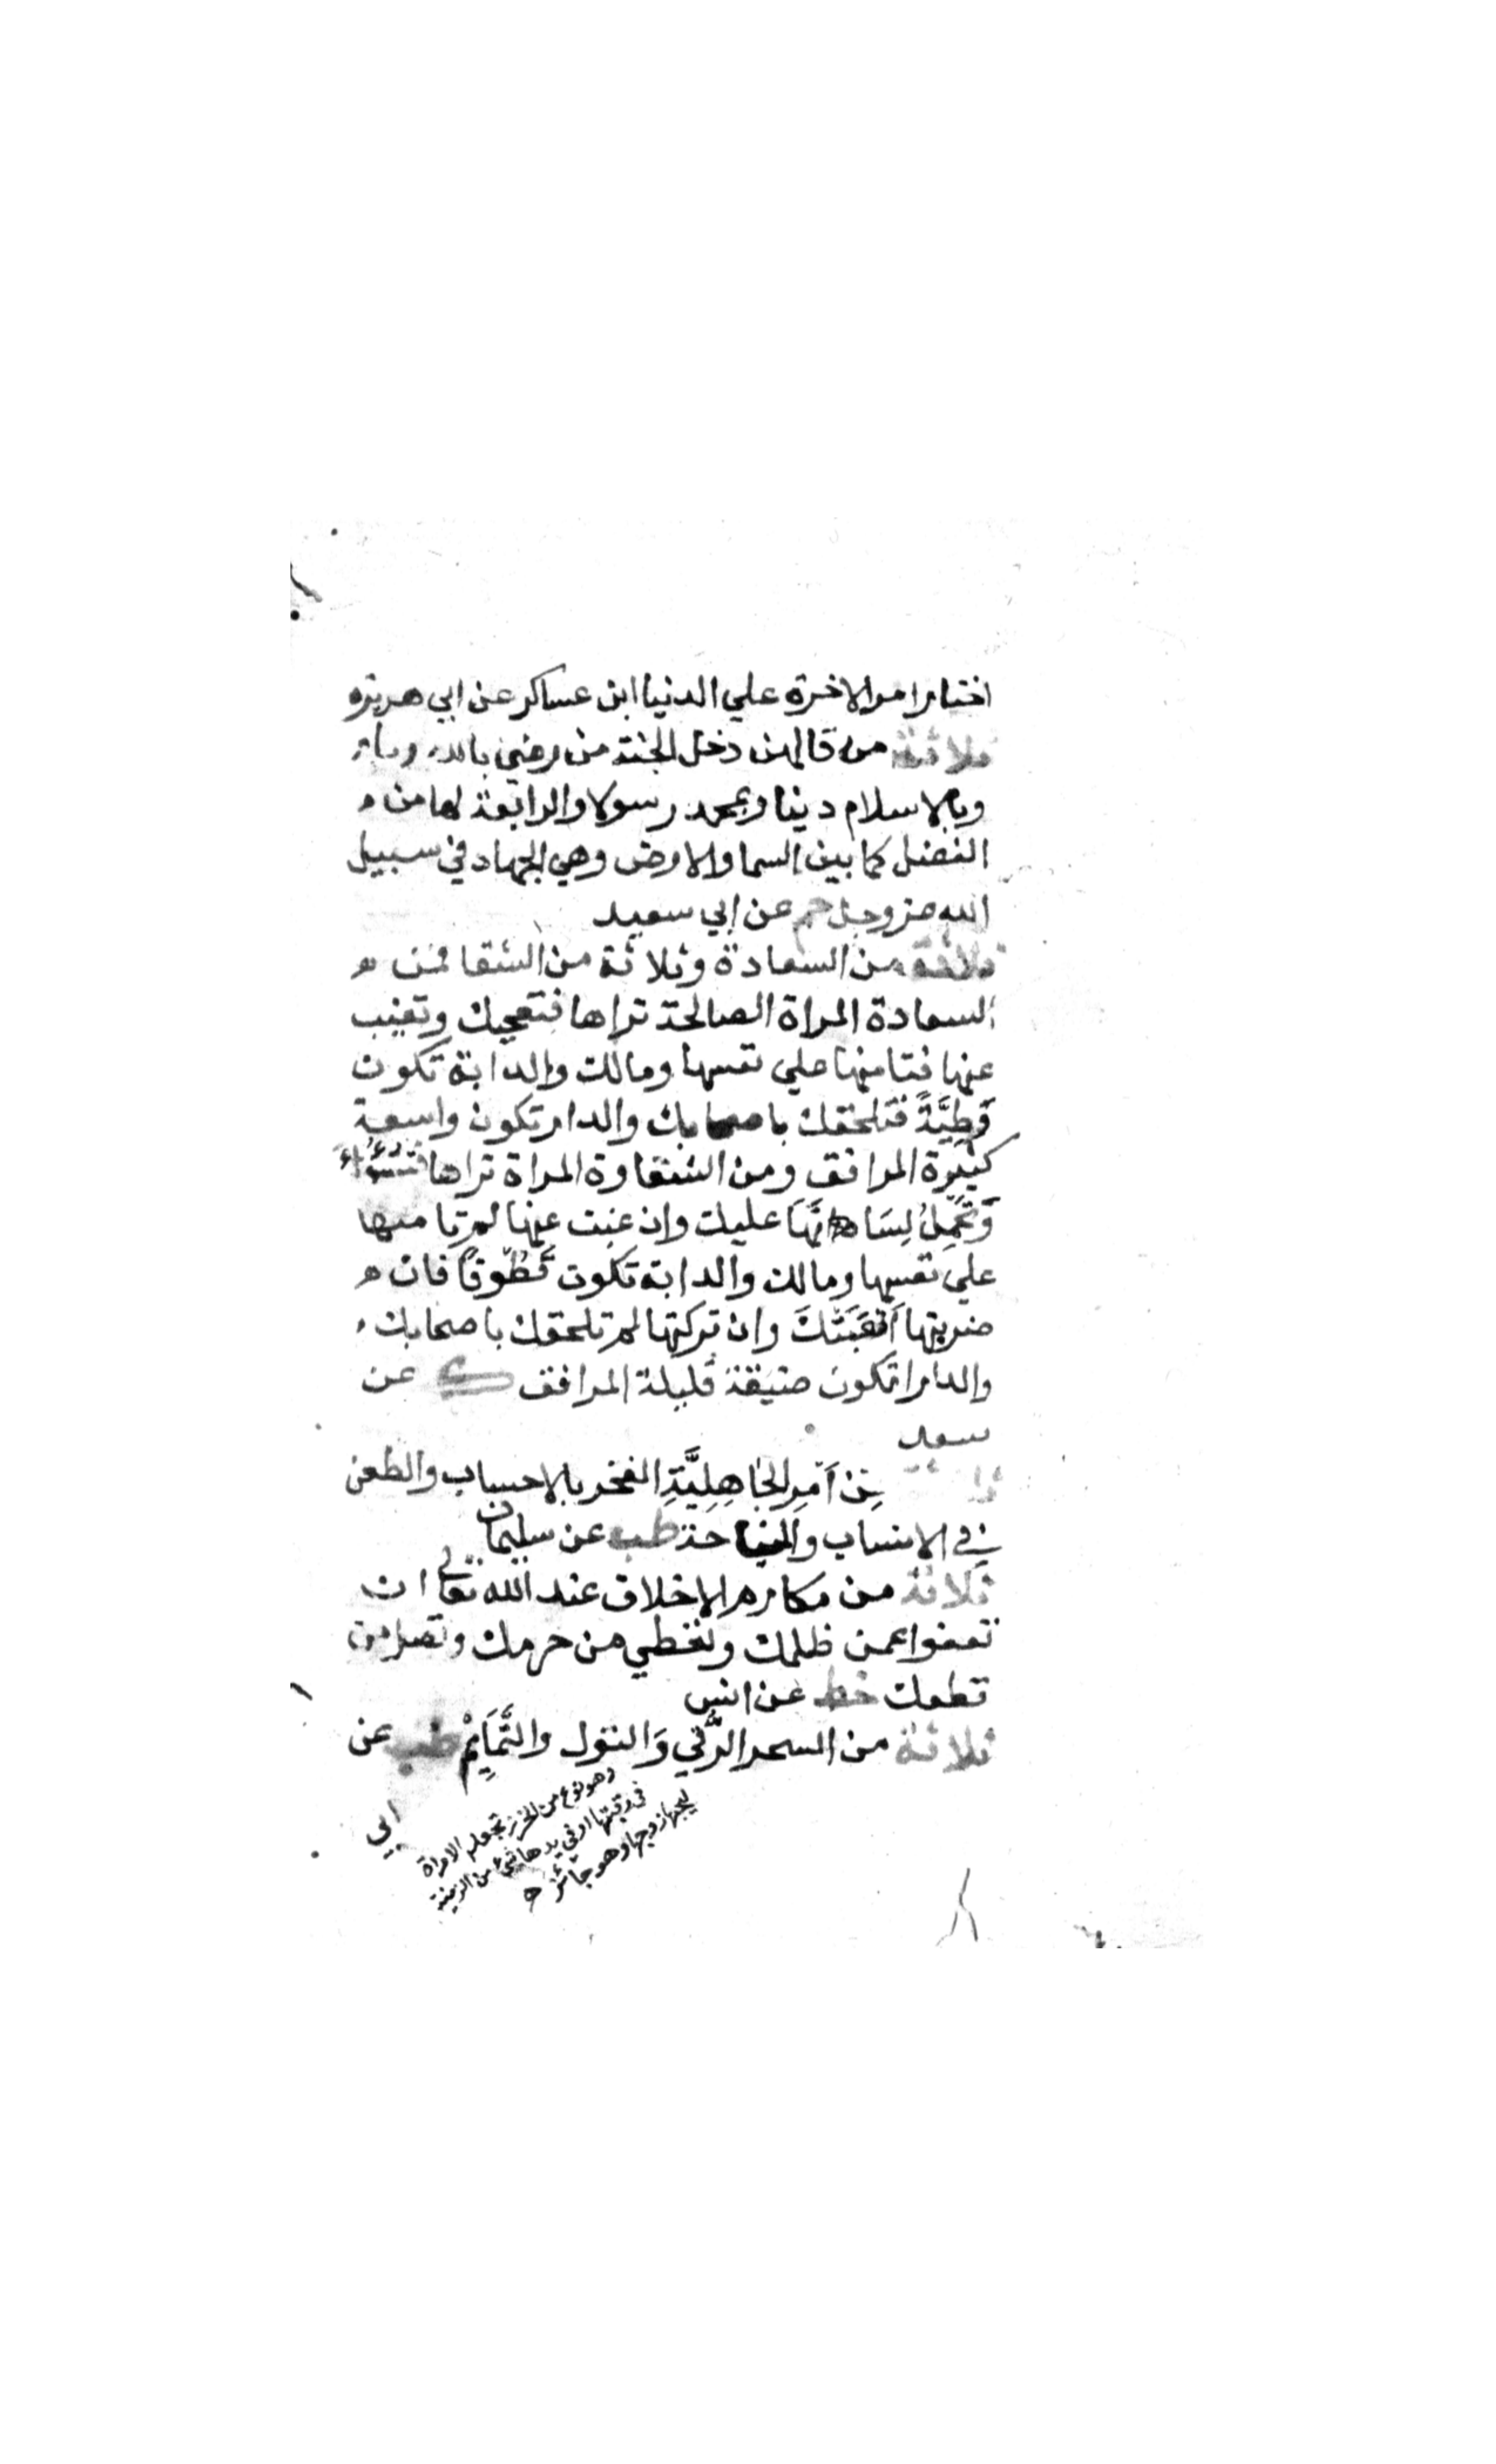 اختار امر الاخرة علي الدنيا ابن عساكر عن ابي هريرة
ثلاثة من قالهن دخل الجنة من رضي بالله ربا
وبالاسلام دينا وبمحمد رسولا والرابعة لها من
الفضل كما بين السما والارض وهي الجهاد في سبيل
الله عز وجل حم عن ابي سعيد
ثلاثة من السعادة وثلاثة من الشقا فمن
السعادة المراة الصالحة تراها فتعجبك وتغيب
عنها فتامنها علي نفسها ومالك والدابة تكون
وَطِيَّةً فتلحقك باصحابك والدار تكون واسعة
كثيرة المرافق ومن الشقاوة المراة تراها فتسؤك
وَتَحْمِلُ لِسَانَهَا عليك وان غبت عنها لم تامنها
علي نفسها ومالك والدابة تكون قَطُوفًا فان
ضربتها اَتْعَبَتْكَ وان تركتها لم تلحقك باصحابك
والدار تكون ضيقة قليلة المرافق ك عن
سعد
ثلاثة مِنْ اَمْرِ الجَاهِلِيَّةِ الفخر بالاحساب والطعن
في الانساب والنياحة طب عن سليمان
ثلاثة من مكارم الاخلاق عند الله تعالي ان
تعفوا عمن ظلمك وتعطي من حرمك وتصل من
قطعك خط عن انس
ثلاثة من السحر الرُّقي وَالتول والتَّمَايِمْ طب عن
ابي
وهو نوع من الخرز تجعله الامراة
في رقبتها او في يدها شيء من الزينة
ليحبها زوجها وهو جائز